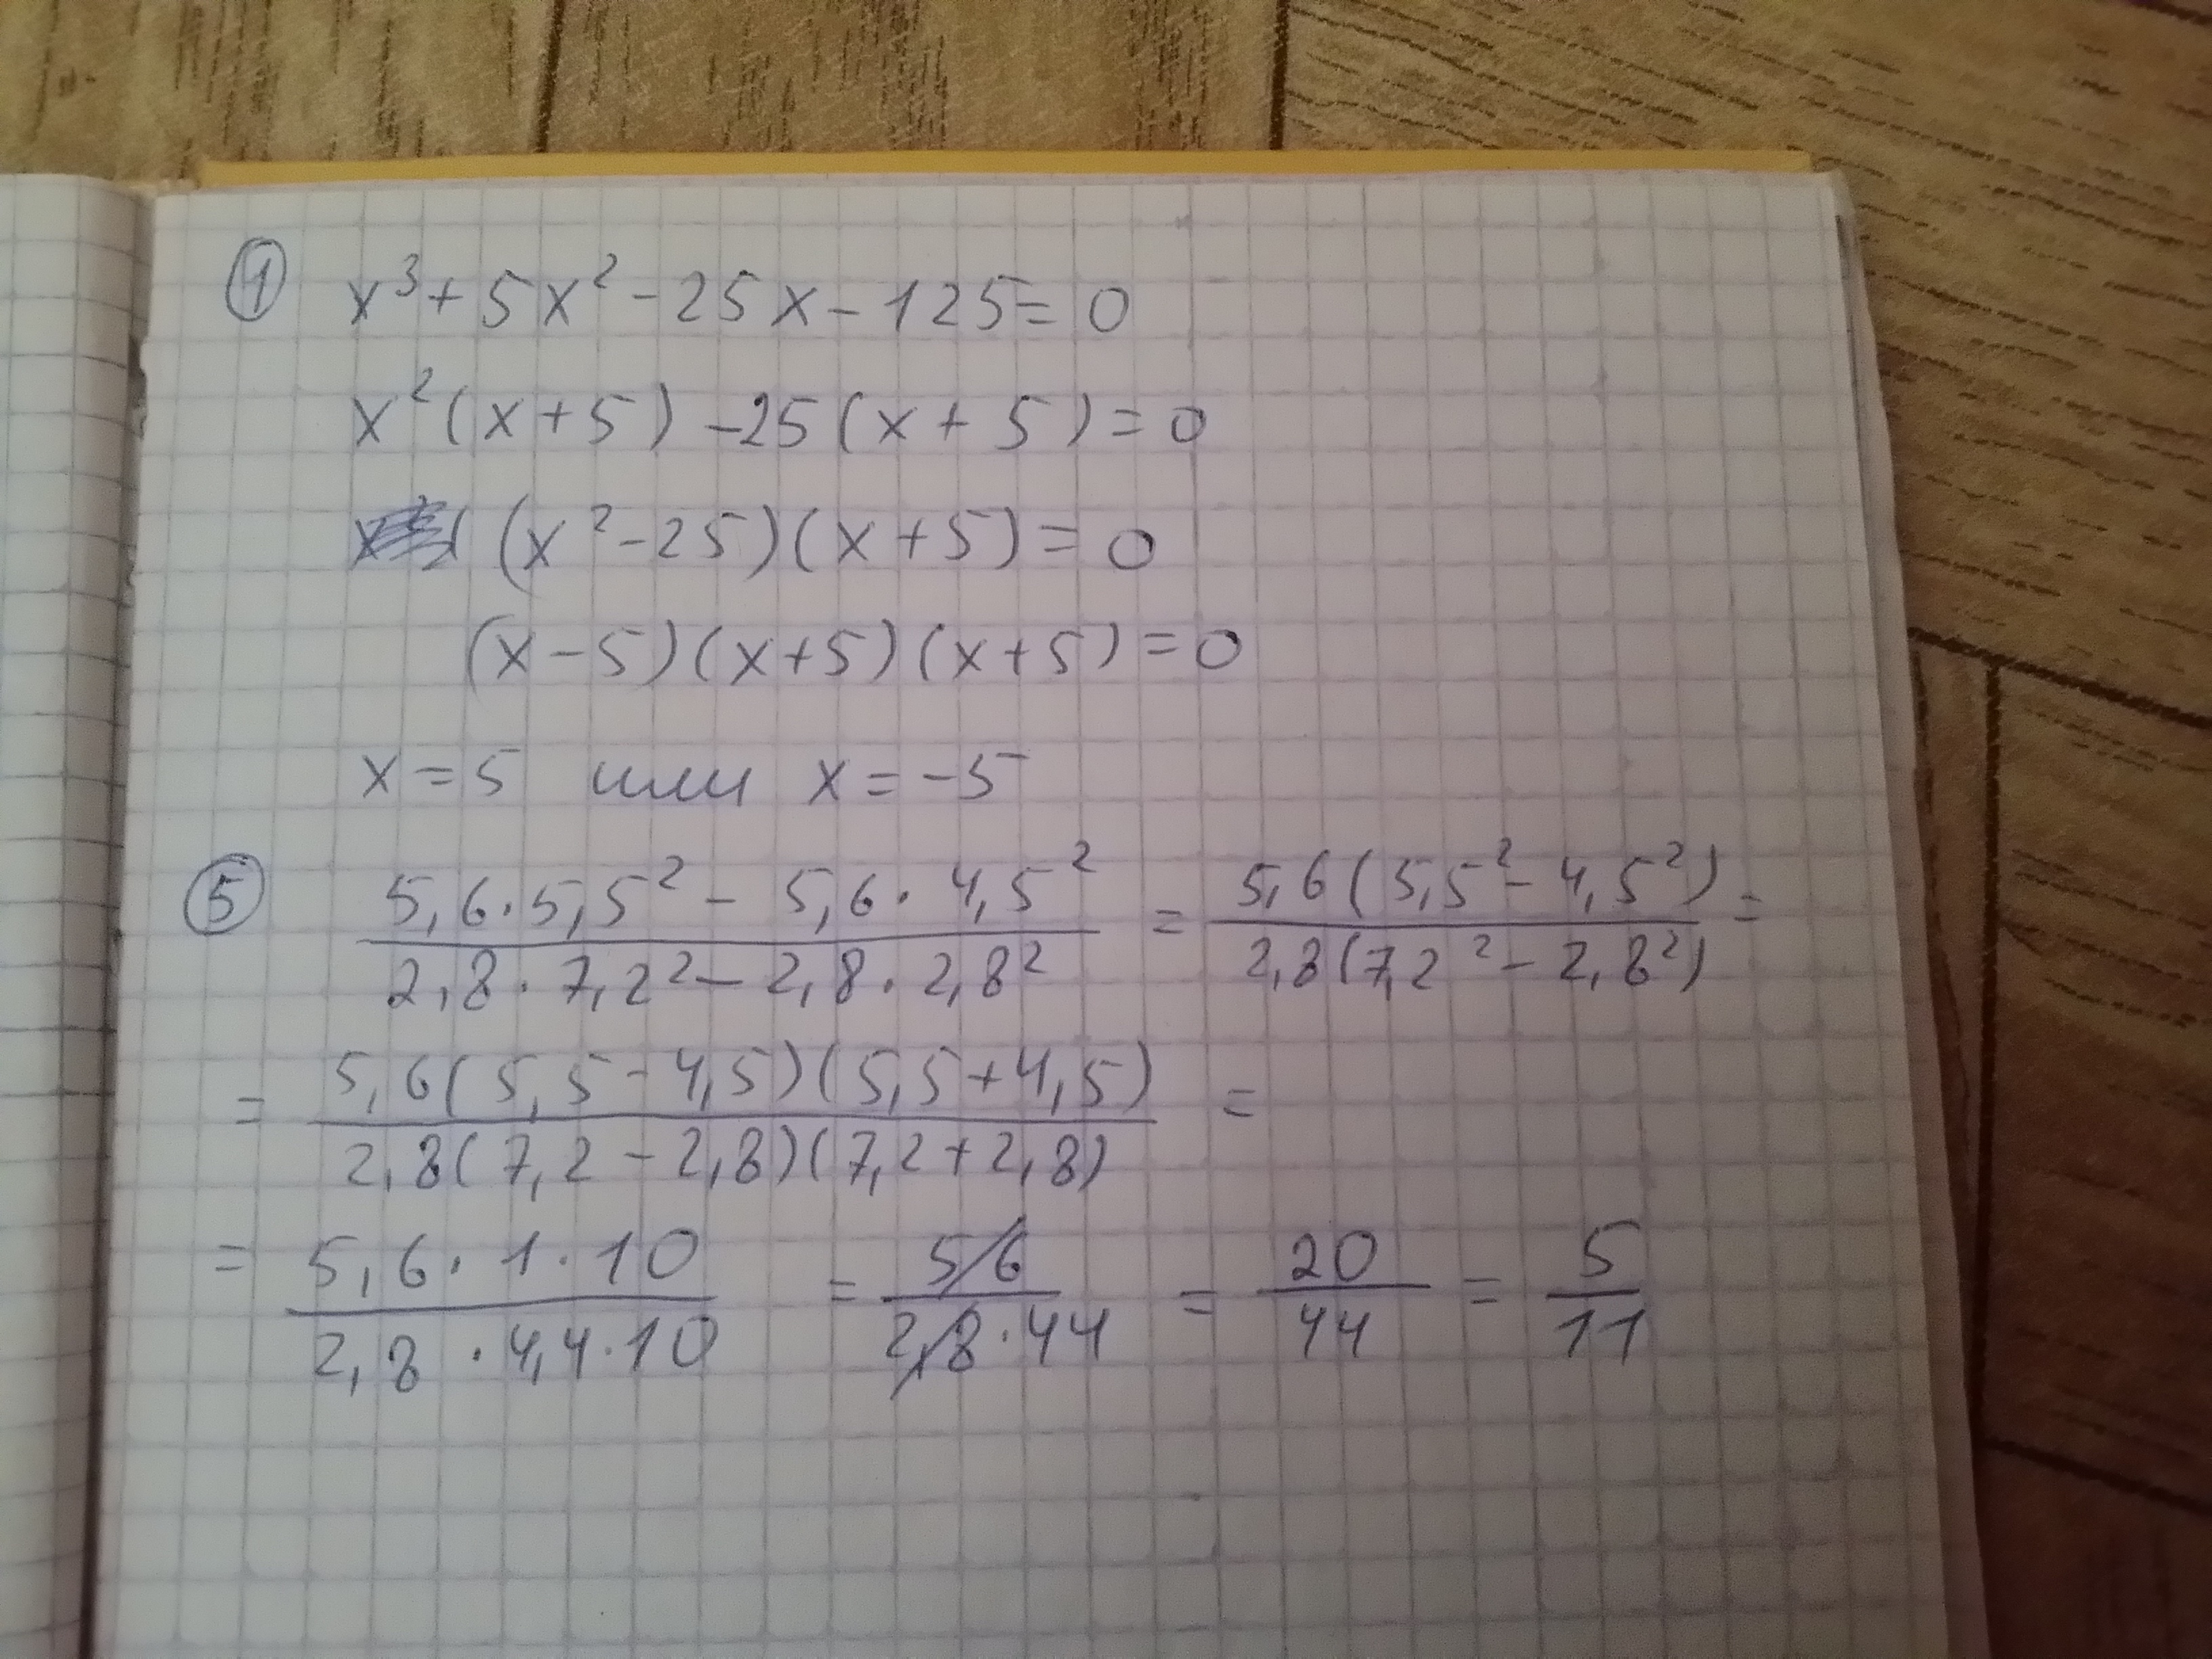 ① x³ + 5x² - 25x - 125 = 0
x²(x + 5) - 25(x + 5) = 0
(x² - 25)(x + 5) = 0
(x - 5)(x + 5)(x + 5) = 0
x = 5 или x = -5
⑤ (5,6 · 5,5² - 5,6 · 4,5²)/(2,8 · 7,2² - 2,8 · 2,8²) = (5,6(5,5² - 4,5²))/(2,8(7,2² - 2,8²)) =
= (5,6(5,5 - 4,5)(5,5 + 4,5))/(2,8(7,2 - 2,8)(7,2 + 2,8)) =
= (5,6 · 1 · 10)/(2,8 · 4,4 · 10) = 56/(2,8 · 44) = 20/44 = 5/11